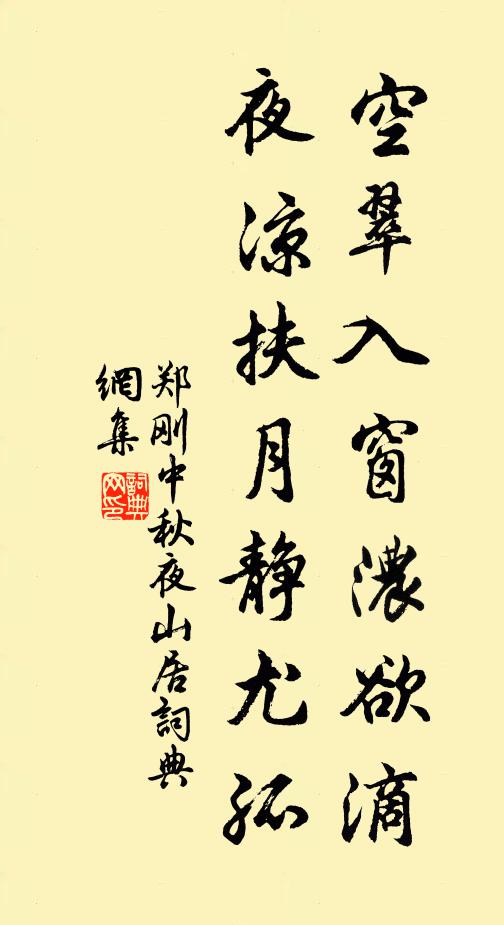 空翠入窗濃欲滴
夜凉扶月静尤孤
郑刚中秋夜山居詞典
網集
詞典
网印